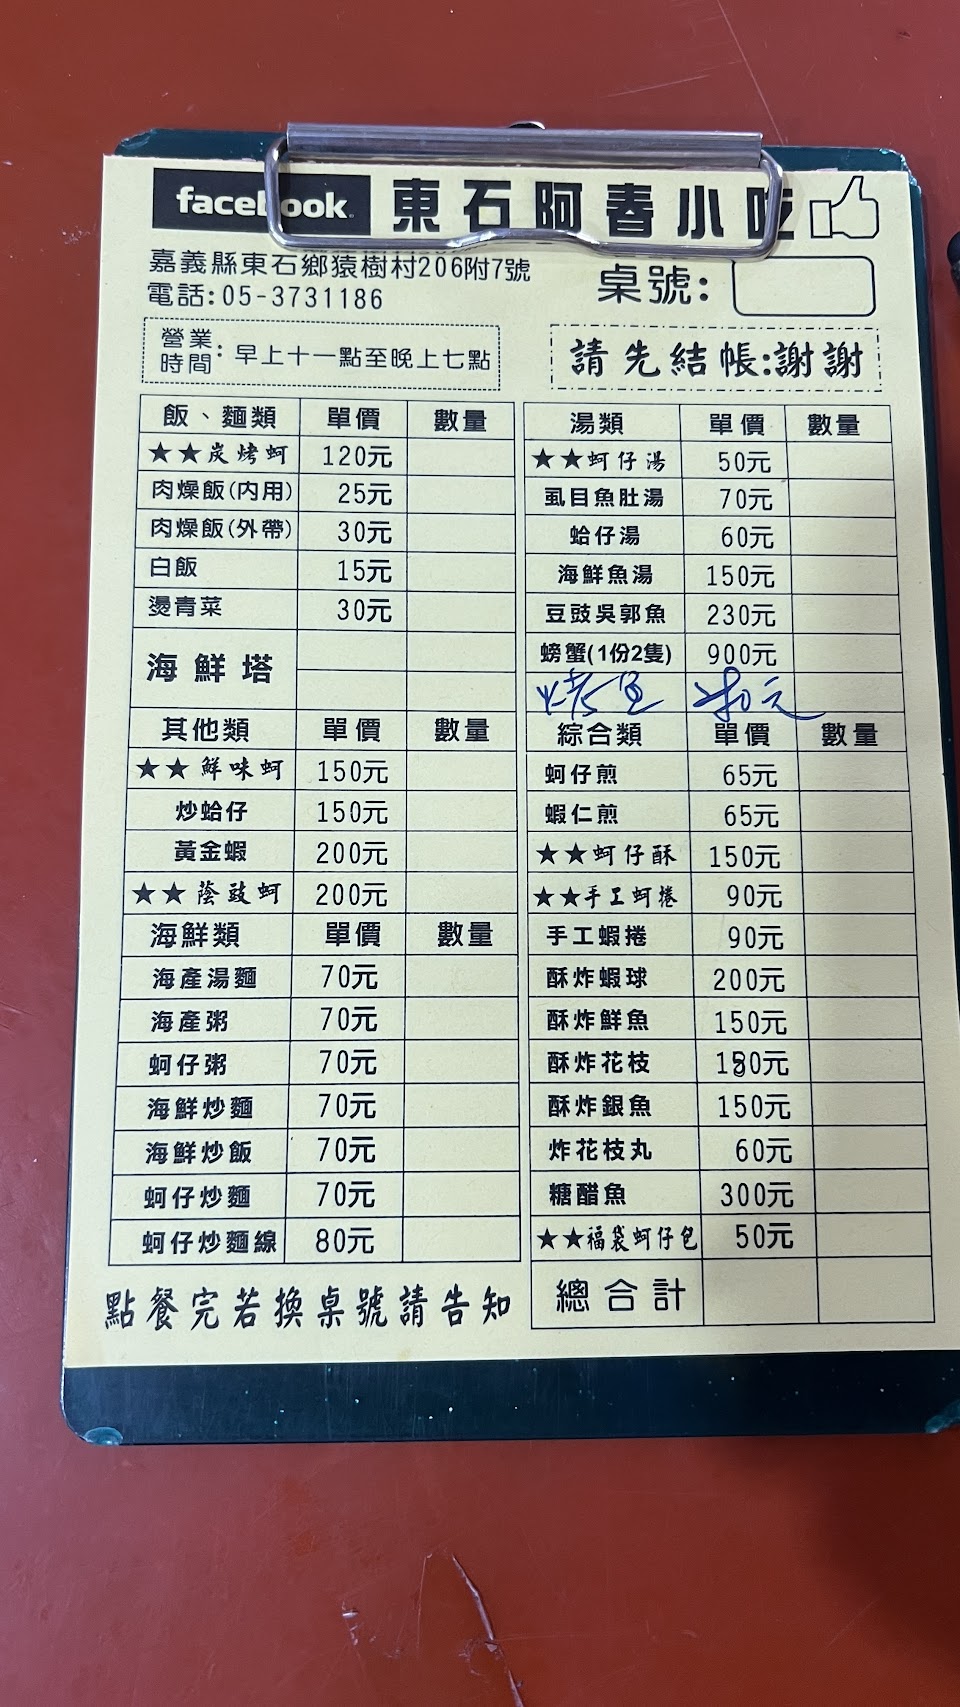 facebook 東石阿春小吃
嘉義縣東石鄉猿樹村206附7號
電話:05-3731186
桌號:
營業時間:早上十一點至晚上七點
請先結帳:謝謝
飯、麵類 單價 數量
★★炭烤蚵 120元
肉燥飯(內用) 25元
肉燥飯(外帶) 30元
白飯 15元
燙青菜 30元
海鮮塔
其他類 單價 數量
★★鮮味蚵 150元
炒蛤仔 150元
黃金蝦 200元
★★蔭豉蚵 200元
海鮮類 單價 數量
海產湯麵 70元
海產粥 70元
蚵仔粥 70元
海鮮炒麵 70元
海鮮炒飯 70元
蚵仔炒麵 70元
蚵仔炒麵線 80元
點餐完若換桌號請告知
湯類 單價 數量
★★蚵仔湯 50元
虱目魚肚湯 70元
蛤仔湯 60元
海鮮魚湯 150元
豆豉吳郭魚 230元
螃蟹(1份2隻) 900元
烤魚 元
綜合類 單價 數量
蚵仔煎 65元
蝦仁煎 65元
★★蚵仔酥 150元
★★手工蚵捲 90元
手工蝦捲 90元
酥炸蝦球 200元
酥炸鮮魚 150元
酥炸花枝 元
酥炸銀魚 150元
炸花枝丸 60元
糖醋魚 300元
★★福袋蚵仔包 50元
總合計